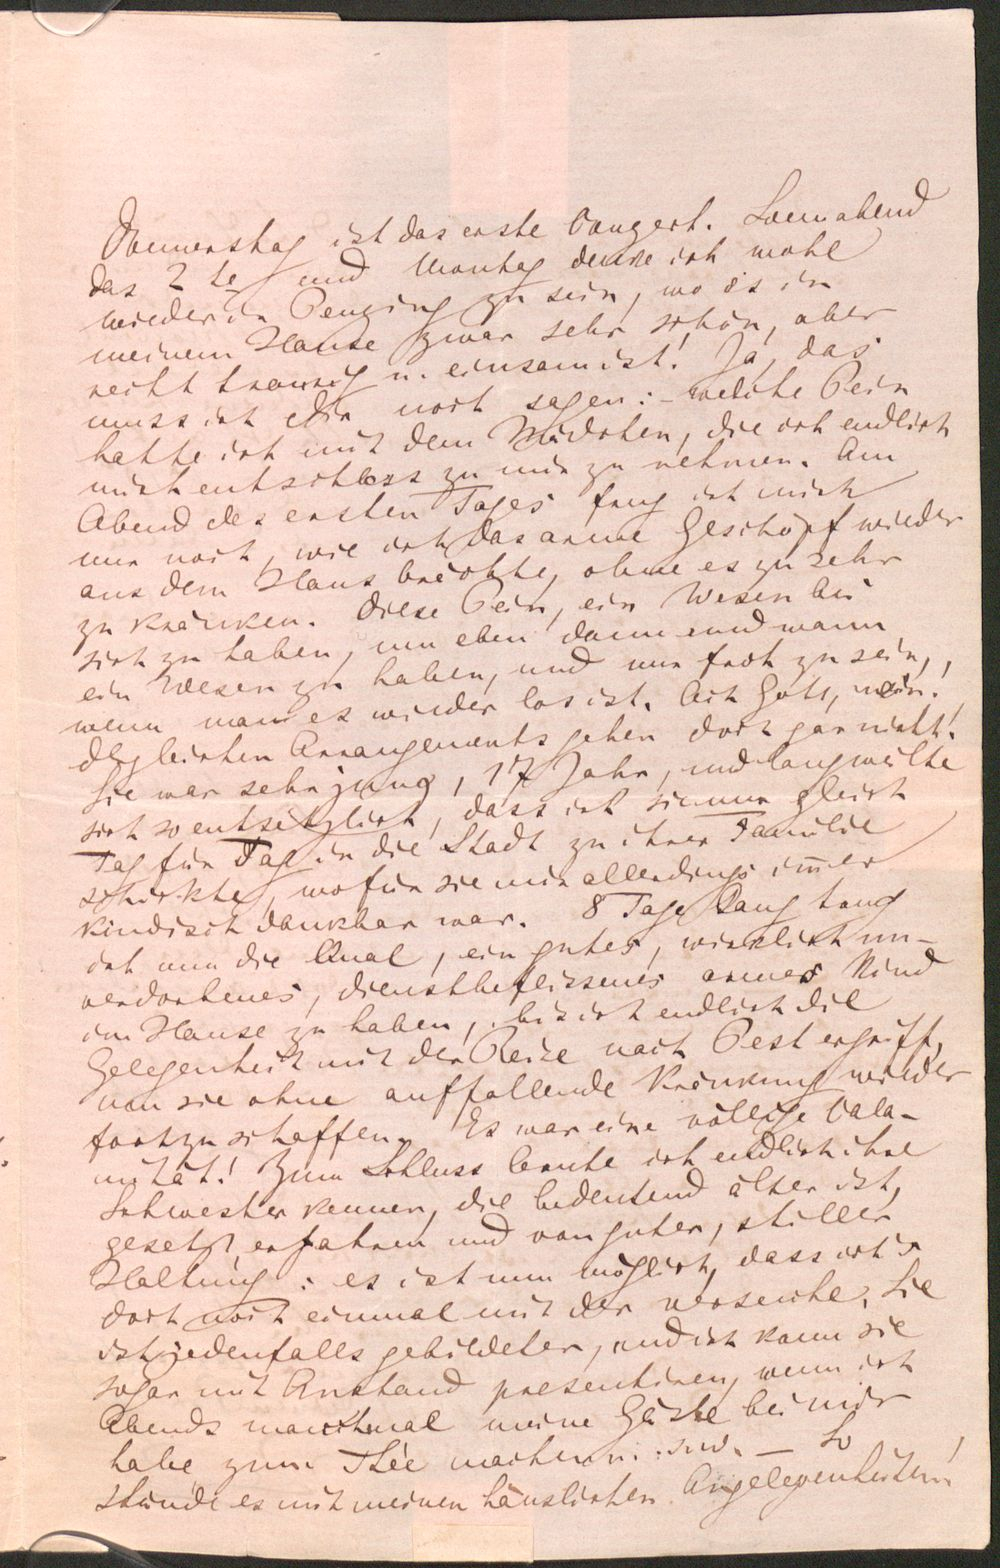 Donnerstag ist das erste Conzert. Sonnabend
das 2te, und Montag denke ich wohl
wieder in Penzing zu sein, wo es in
meinem Hause zwar sehr schön, aber
recht traurig u. einsam ist! Ja, das
muss ich Dir noch sagen: – welche Pein
hatte ich mit dem Mädchen, die ich endlich
mich entschloss zu mir zu nehmen. Am
Abend des ersten Tages frug ich mich
nur noch, wie ich das arme Geschöpf wieder
aus dem Haus brächte, ohne es zu sehr
zu kränken. Diese Pein, ein Wesen bei
sich zu haben, um eben dann und wann
ein Wesen zu haben, und nun froh zu sein,
wenn man es wieder los ist. Ach Gott, nein!
dergleichen Arrangements gehen doch gar nicht!
Sie war sehr jung, 17 Jahr, und langweilte
sich so entsetzlich, dass ich sie nur gleich
Tag für Tag in die Stadt zu ihrer Familie
schickte, wofür sie mir allerdings im̅er
kindisch dankbar war. 8 Tage lang trug
ich nun die Qual, ein gutes, wirklich un-
verdorbenes, dienstbeflissenes armes Kind
im Hause zu haben, bis ich endlich die
Gelegenheit mit der Reise nach Pest ergriff,
um sie ohne auffallende Kränkung wieder
fortzuschaffen. Es war eine völlige Cala-
mität! Zum Schluss lernte ich endlich ihre
Schwester kennen, die bedeutend älter ist,
gesetzt, erfahren und von guter, stiller
Haltung: es ist nun möglich, dass ich's
doch noch einmal mit der versuche. Sie
ist jedenfalls gebildeter, und ich kann sie
sogar mit Anstand presentiren, wenn ich
Abends manchmal meine Gäste bei mir
habe zum Thee machen u.s.w. — So
stünde es mit meinen häuslichen Angelegenheiten!